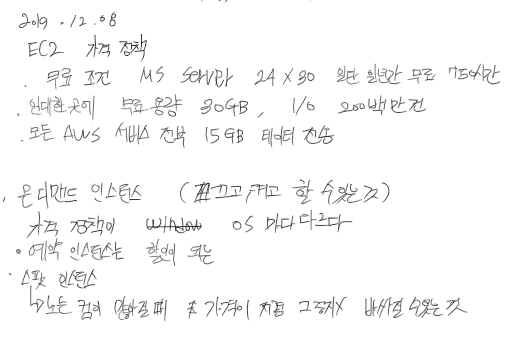 2019.12.08
EC2 가격 정책
. 무료 조건 MS Server 24 X 30 일단 일년간 무료 750시간
. 임대한곳에 무료 용량 30GB, I/O 200백만건
. 모든 AWS 서비스 전부 15GB 데이터 전송
. 온디맨드 인스턴스 (끄고, 켜고 할 수 있는 것)
가격 정책이 window OS 마다 다르다
• 예약 인스턴스는 할인이 되는
. 스팟 인스턴스
노는 컴이 많아질때 가격이 저렴 그런지 바빠질 수 있는 것